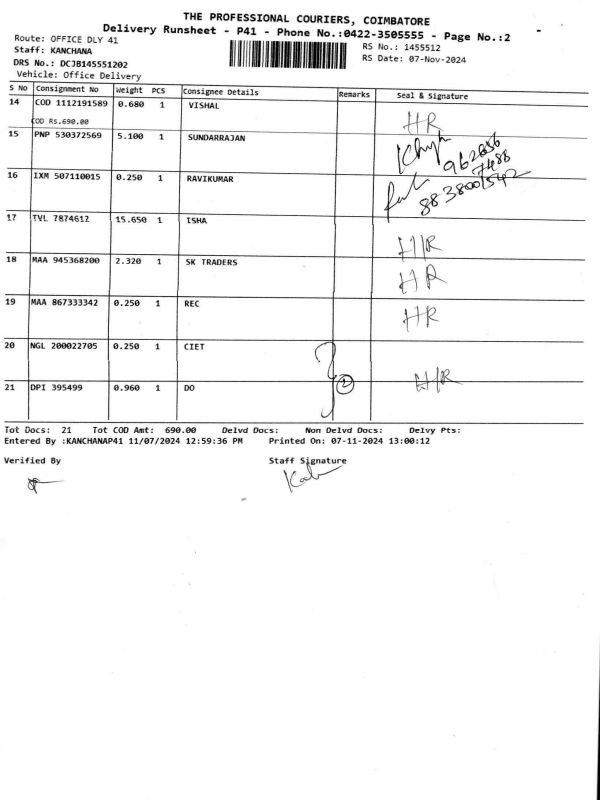 THE PROFESSIONAL COURIERS, COIMBATORE
Delivery Runsheet - P41 - Phone No.:0422-3505555 - Page No.:2
Route: OFFICE DLY 41
RS No.: 1455512
Staff: KANCHANA
RS Date: 07-Nov-2024
DRS No.: DCJB145551202
Vehicle: Office Delivery
S No Consignment No Weight PCS Consignee Details Remarks Seal & Signature
14 COD 1112191589 0.680 1 VISHAL HR
COD Rs.690.00
15 PNP 530372569 5.100 1 SUNDARRAJAN
7488
16 IXM 507110015 0.250 1 RAVIKUMAR
17 TVL 7874612 15.650 1 ISHA HR
18 MAA 945368200 2.320 1 SK TRADERS HR
19 MAA 867333342 0.250 1 REC HR
20 NGL 200022705 0.250 1 CIET
21 DPI 395499 0.960 1 DO 2 HR
Tot Docs: 21 Tot COD Amt: 690.00 Delvd Docs: Non Delvd Docs: Delvy Pts:
Entered By :KANCHANAP41 11/07/2024 12:59:36 PM Printed On: 07-11-2024 13:00:12
Verified By Staff Signature